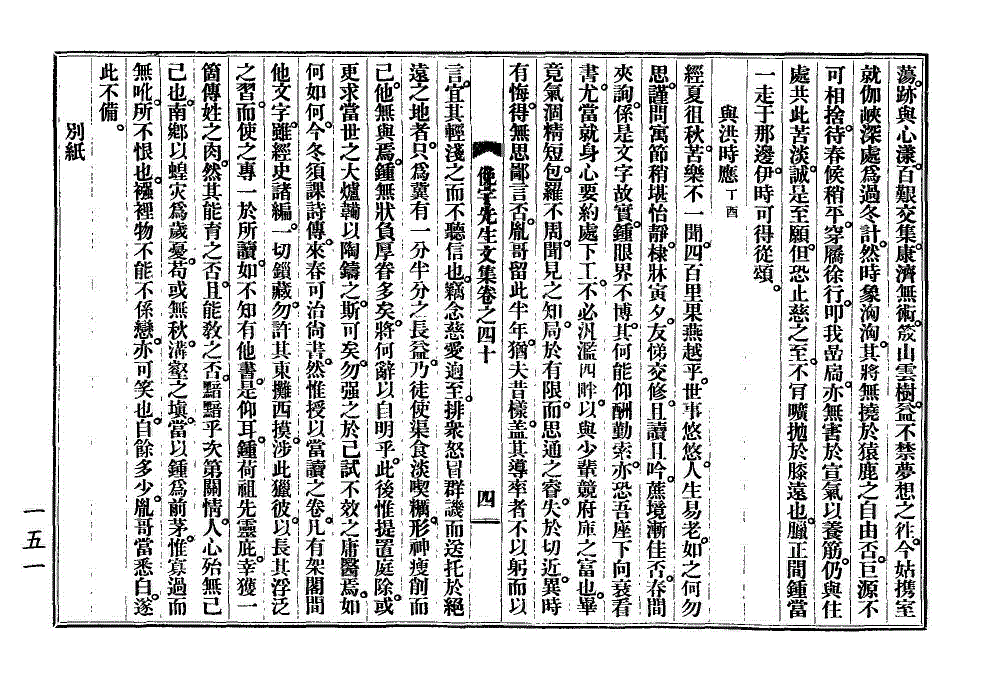 蕩。跡與心漾。百艱交集。康濟無術。笯山雲樹。益不禁夢想之徃。今姑携室
就伽峽深處。爲過冬計。然時象洶洶。其將無撓於猿鹿之自由否。巨源不
可相捨。待春候稍平。穿屩徐行。叩我嵒扃。亦無害於宣氣以養筋。仍與住
處共此苦淡。誠是至願。但恐止慈之至。不肯曠抛於膝遠也。臘正間鍾當
一走于那邊。伊時可得從頌。
與洪時應 丁酉
經夏徂秋。苦樂不一聞。四百里果燕越乎。世事悠悠。人生易老。如之何勿
思。謹問寓節稍堪怡靜。棣牀寅夕。友悌交修。且讀且吟。蔗境漸佳否。春間
夾詢。係是文字故實。鍾眼界不博。其何能仰酬勤索。亦恐吾座下向衰看
書。尤當就身心要約處下工。不必汎濫四畔。以與少輩競府庫之富也。畢
竟氣涸精短。包羅不周。聞見之知。局於有限。而思通之睿。失於切近。異時
有悔。得無思鄙言否。胤哥留此半年。猶夫昔樣。盖其導率者不以躬而以
俛宇先生文集卷之四十
四
言。宜其輕淺之而不聽信也。竊念慈愛迥至。排衆怒冒群譏。而送托於絕
遠之地者。只爲冀有一分半分之長益。乃徒使渠食淡喫糲。形神瘦削而
己。他無與焉。鍾無狀負厚眷多矣。將何辭以自明乎。此後惟提置庭除。或
更求當世之大爐韛以陶鑄之。斯可矣。勿强之於己試不效之庸醫焉。如
何如何。今冬須課詩傳。來春可治尙書。然惟授以當讀之卷。凡有架閣間
他文字。雖經史諸編。一切鎖藏。勿許其東攤西摸。涉此獵彼。以長其浮泛
之習。而使之專一於所讀。如不知有他書。是仰耳。鍾荷祖先靈庇。幸獲一
箇傳姓之肉。然其能育之否。且能敎之否。黯黯乎次第關情。人心殆無己
己也。南鄕以蝗灾爲歲憂。苟或無秋。溝壑之塡。當以鍾爲前茅。惟寘過而
無吪。所不恨也。襁裡物不能不係戀。亦可笑也。自餘多少。胤哥當悉白。遂
此不備。
別紙
一五一